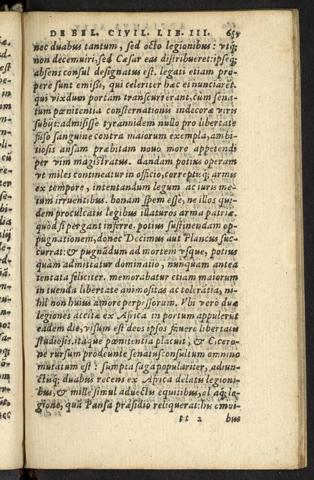 DE BEL. CIVIL. LIB. III.
nec duabus tantum, sed octo legionibus: utq;
non decemuiri, sed Cæsar eas distribueret: ipseq;
absens consul designatus est. legati etiam prope
re sunt emissi, qui celeriter hæc ei nunciaret.
qui vixdum portam transcurrerant, cum sena-
tum pœnitentia consternationis indecoræ viris
subijt: admisisse tyrannidem nullo pro libertate
fuso sanguine contra maiorum exempla, ambi-
tiosis ansam præbitam nouo more appetendi
per vim magistratus. dandam potius operam
vt miles contineatur in officio, correptisq; armis
ex tempore, intentandum legum ac iuris me-
tum irruentibus. bonam spem esse, ne illos qui-
dem proculcatis legibus illaturos arma patriæ.
quòd si pergant inferre. potius sustinendam op-
pugnationem, donec Decimus aut Plancus suc-
currat: & pugnādum ad mortem vsque, potius
quàm admittatur dominatio, nunquam antea
tentata feliciter. memorabatur etiam maiorum
in tuenda libertate animositas ac tolerātia, ni-
hil non huius amore perpessorum. Vbi verò duæ
legiones accitæ ex Africa in portum appulerūt
eadem die, visum est deos ipsos fauere libertatis
studiosis. itaque pœnitentia placuit, & Cicero-
ne rursum prodeunte senatusconsultum omnino
mutatum est: sumpta saga populariter, adiun-
ctisq; duabus recens ex Africa delatis legioni-
bus, & mille simul aduectis equitibus, et aq; le-
gione, quā Pansa præsidio reliquerat: his omni-
ss 2 bus